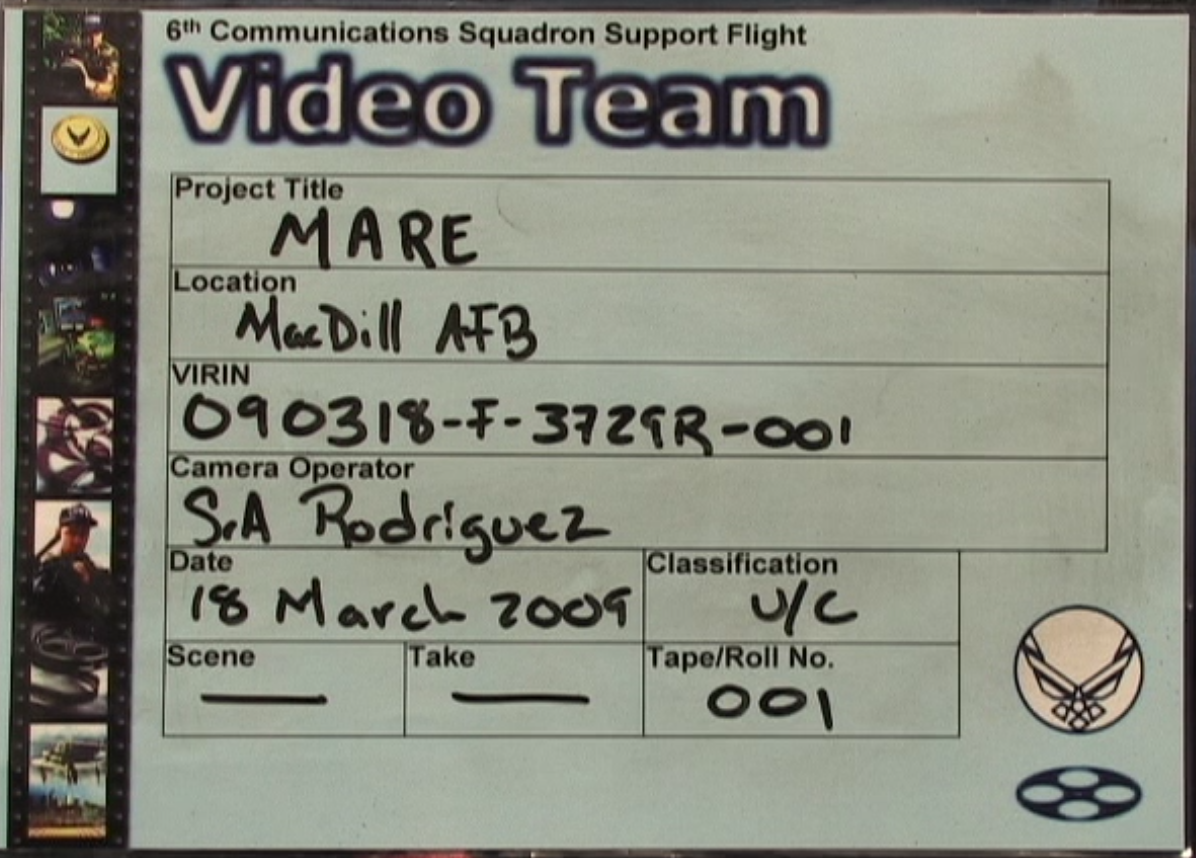 6th Communications Squadron Support Flight
Video Team
Project Title
MARE
Location
MacDill AFB
VIRIN
090318-F-3729R-001
Camera Operator
SrA Rodriguez
Date
18 March 2009
Classification
U/C
Scene
—
Take
—
Tape/Roll No.
001